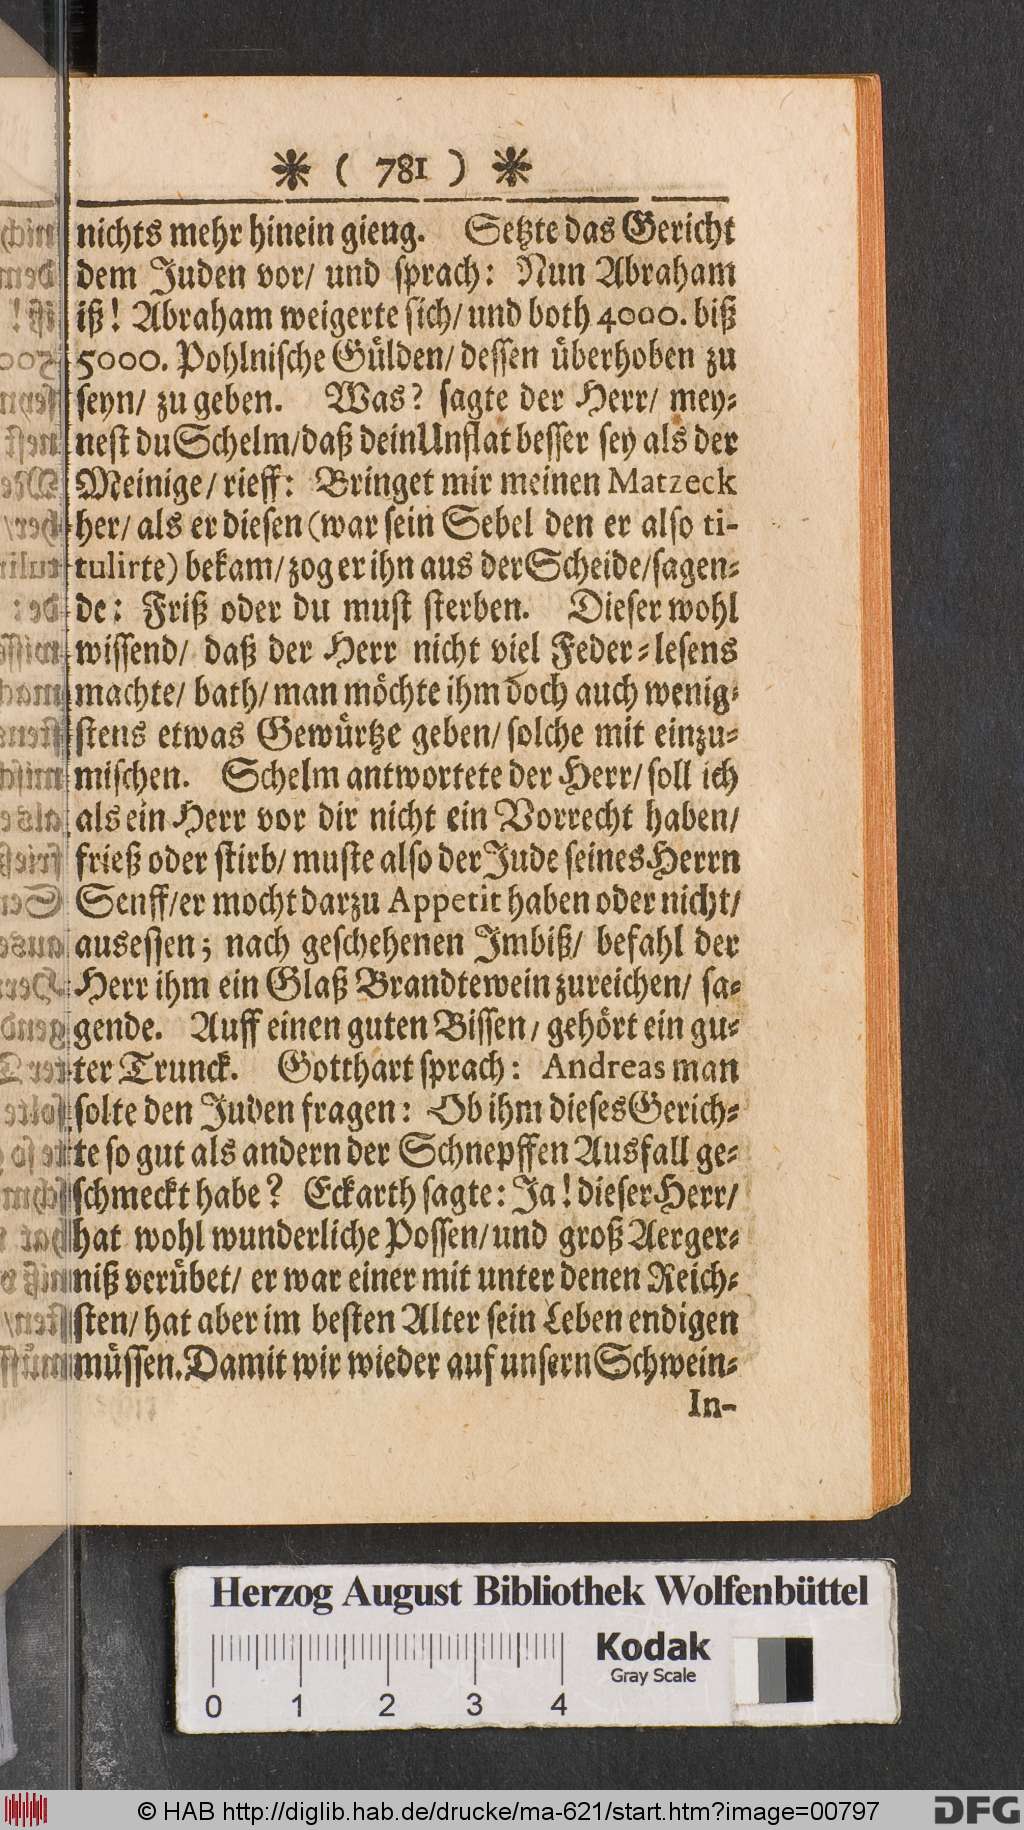 * ( 781 ) *
nichts mehr hinein gieng. Setzte das Gericht
dem Juden vor/ und sprach: Nun Abraham
iß! Abraham weigerte sich/ und both 4000. biß
5000. Pohlnische Gülden/ dessen überhoben zu
seyn/ zu geben. Was? sagte der Herr/ mey-
nest du Schelm/ daß dein Unflat besser sey als der
Meinige/ rieff: Bringet mir meinen Matzeck
her/ als er diesen (war sein Sebel den er also ti-
tulirte) bekam/ zog er ihn aus der Scheide/ sagen-
de: Friß oder du must sterben. Dieser wohl
wissend/ daß der Herr nicht viel Feder-lesens
machte/ bath/ man möchte ihm doch auch wenig-
stens etwas Gewürtze geben/ solche mit einzu-
mischen. Schelm antwortete der Herr/ soll ich
als ein Herr vor dir nicht ein Vorrecht haben/
frieß oder stirb/ muste also der Jude seines Herrn
Senff/ er mocht darzu Appetit haben oder nicht/
ausessen; nach geschehenen Imbiß/ befahl der
Herr ihm ein Glaß Brandtewein zureichen/ sa-
gende. Auff einen guten Bissen/ gehört ein gu-
ter Trunck. Gotthart sprach: Andreas man
solte den Juden fragen: Ob ihm dieses Gerich-
te so gut als andern der Schnepffen Ausfall ge-
schmeckt habe? Eckarth sagte: Ja! dieser Herr/
hat wohl wunderliche Possen/ und groß Aerger-
niß verübet/ er war einer mit unter denen Reich-
sten/ hat aber im besten Alter sein Leben endigen
müssen. Damit wir wieder auf unsern Schwein-
In-
Herzog August Bibliothek Wolfenbüttel
Kodak
Gray Scale
0 1 2 3 4
© HAB http://diglib.hab.de/drucke/ma-621/start.htm?image=00797
DFG